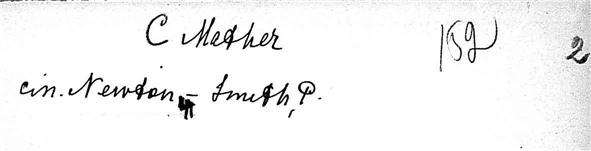 C Mather 152 2
cin. Newton - Smith, P.